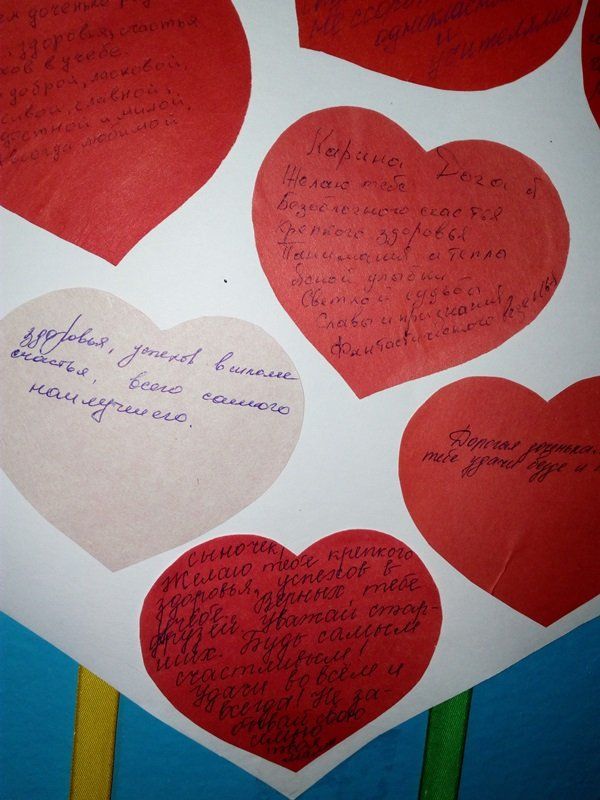 доченьке
здоровья, счастья
в учебе.
доброй, ласковой,
славной,
и милой,
любимой
одноклассн
и
учителями
Карина
Желаю тебе
Безоблачного счастья
Крепкого здоровья
Панимания, а тепла
улыбки
Светлой судьбы
Славы и признания
Фантастического везенья
здоровья, успехов в школе
счастья, всего самого
наилучшего.
Дорогая доченька
тебе удачи
сыночек,
Желаю тебе крепкого
здоровья, успехов в
учёбе. Верных тебе
друзей. уважай стар-
ших. Будь самым
счастливым!
Удачи во всём и
всегда! Не за-
бывай свою
семью
твоя
мама